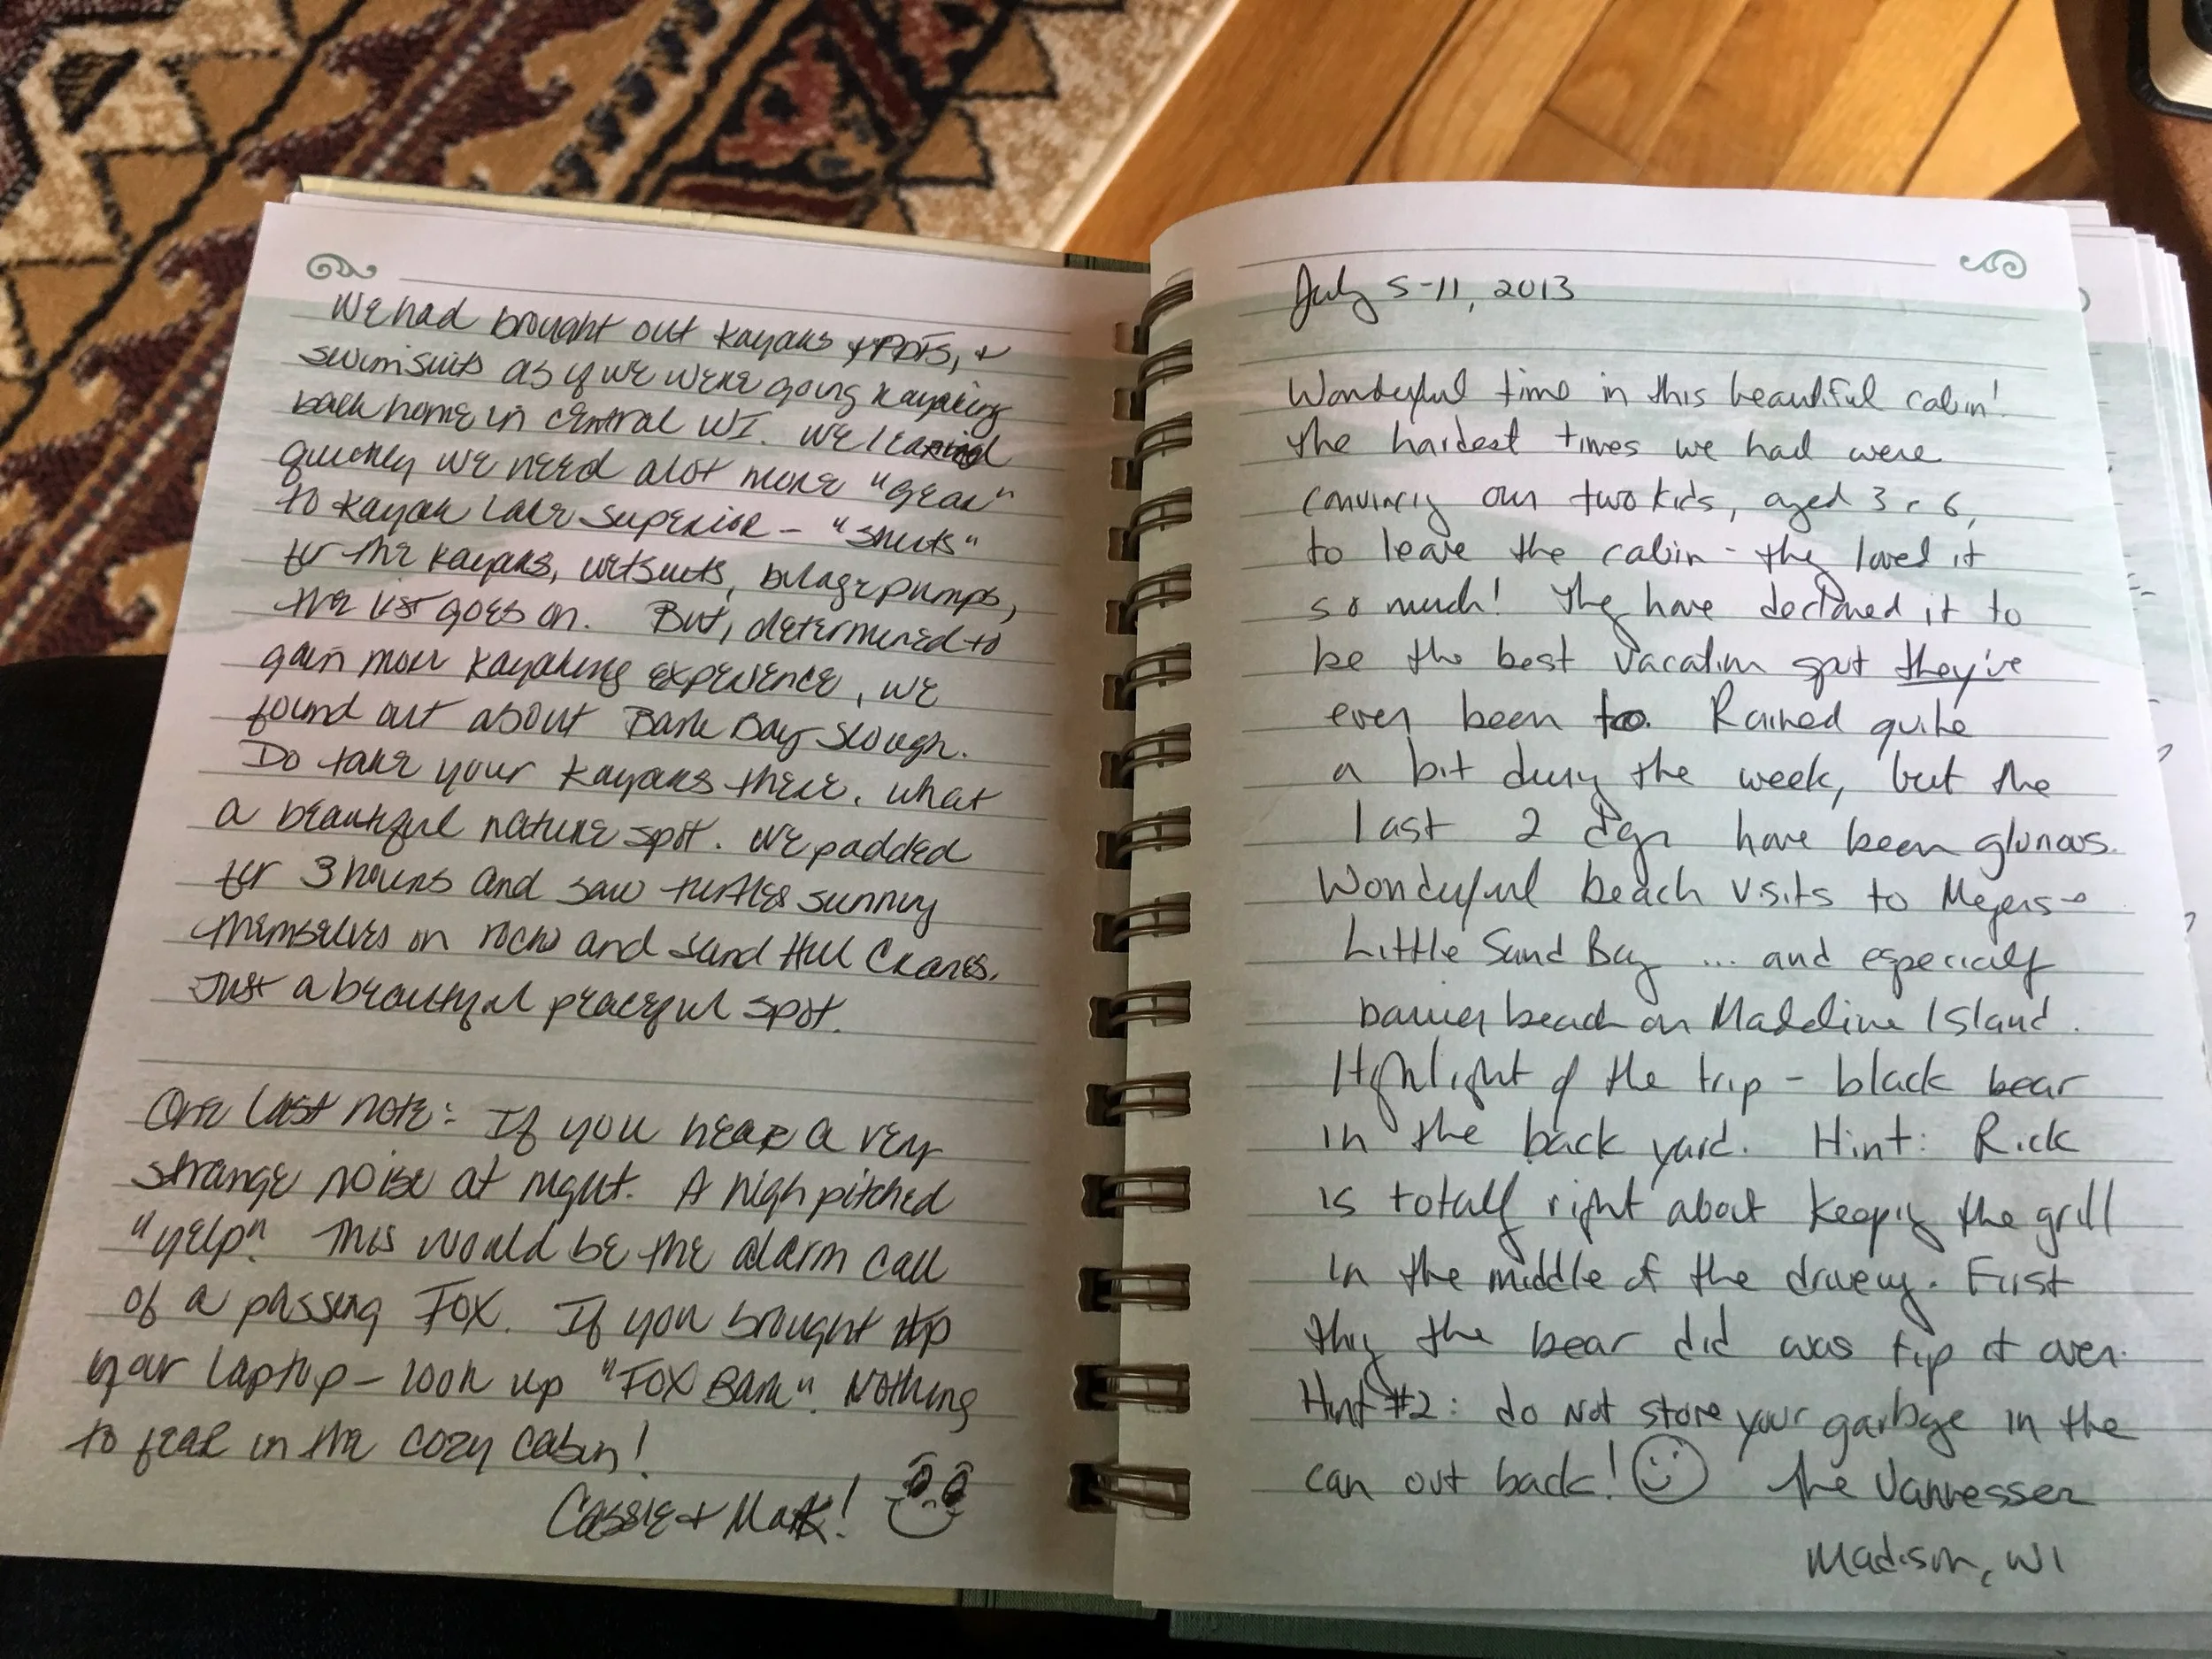 We had brought out kayaks + PDFs, +
swimsuits as if we were going kayaking
back home in central WI. We learned
quickly we need alot more "gear"
to kayak Lake Superior - "skirts"
for the kayaks, wetsuits, bilage pumps,
the list goes on. But, determined to
gain more kayaking experience, we
found out about Bark Bay Slough.
Do take your kayaks there. What
a beautiful nature spot. We padded
for 3 hours and saw turtles sunning
themselves on rocks and Sand Hill Cranes.
Just a beautiful peaceful spot.
One last note: If you hear a very
strange noise at night. A high pitched
"yelp". This would be the alarm call
of a passing Fox. If you brought
your laptop - look up "Fox Bark". Nothing
to fear in the cozy cabin!
Cassie + Mark!
July 5-11, 2013
Wonderful time in this beautiful cabin!
The hardest times we had were
convincing our two kids, aged 3 + 6,
to leave the cabin - they loved it
so much! They have declared it to
be the best vacation spot they've
ever been to. Rained quite
a bit during the week, but the
last 2 days have been glorious.
Wonderful beach visits to Meyers →
Little Sand Bay ... and especially
barrier beach on Madeline Island.
Highlight of the trip - black bear
in the back yard. Hint: Rick
is totally right about keeping the grill
in the middle of the driveway. First
thing the bear did was tip it over.
Hint #2: do not store your garbage in the
can out back! The
Madison, WI